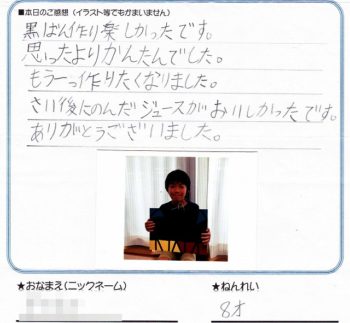 ■本日のご感想(イラスト等でもかまいません)
黒ばん作り楽しかったです。
思ったよりかんたんでした。
もう一つ作りたくなりました。
さい後たのんだジュースがおいしかったです。
ありがとうございました。
★おなまえ(ニックネーム)
★ねんれい
8才